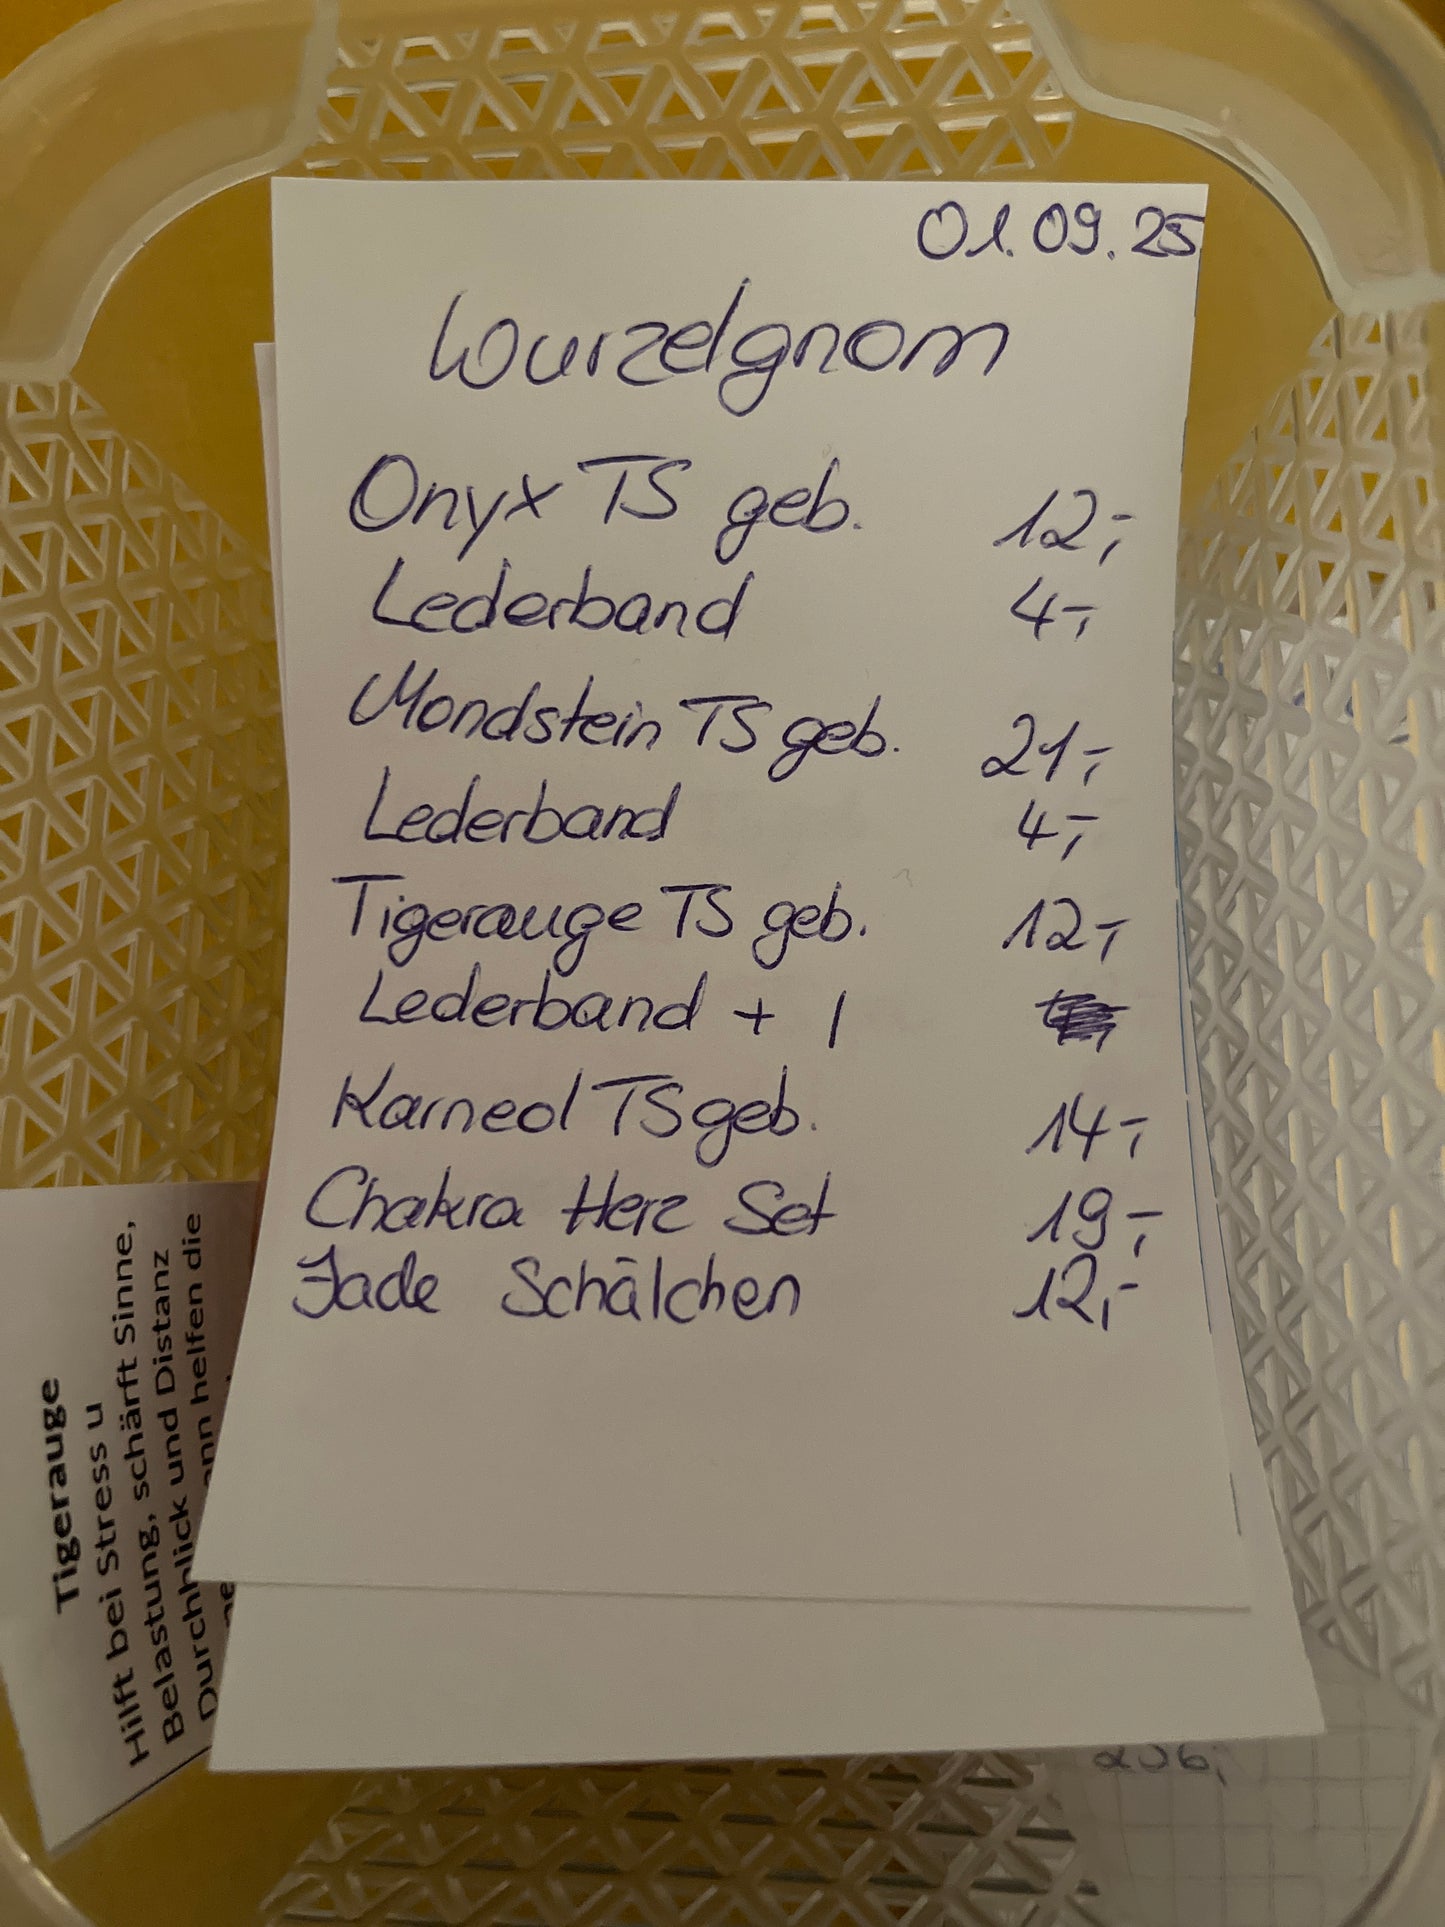 01.09.25
Wurzelgnom
Onyx TS geb. 12,-
Lederband 4,-
Mondstein TS geb. 21,-
Lederband 4,-
Tigerauge TS geb. 12,-
Lederband + 1
Karneol TS geb. 14,-
Chakra Herz Set 19,-
Jade Schälchen 12,-
Tigerauge
Hilft bei Stress u
Belastung, schärft Sinne,
Durchblick und Distanz
helfen die
206,